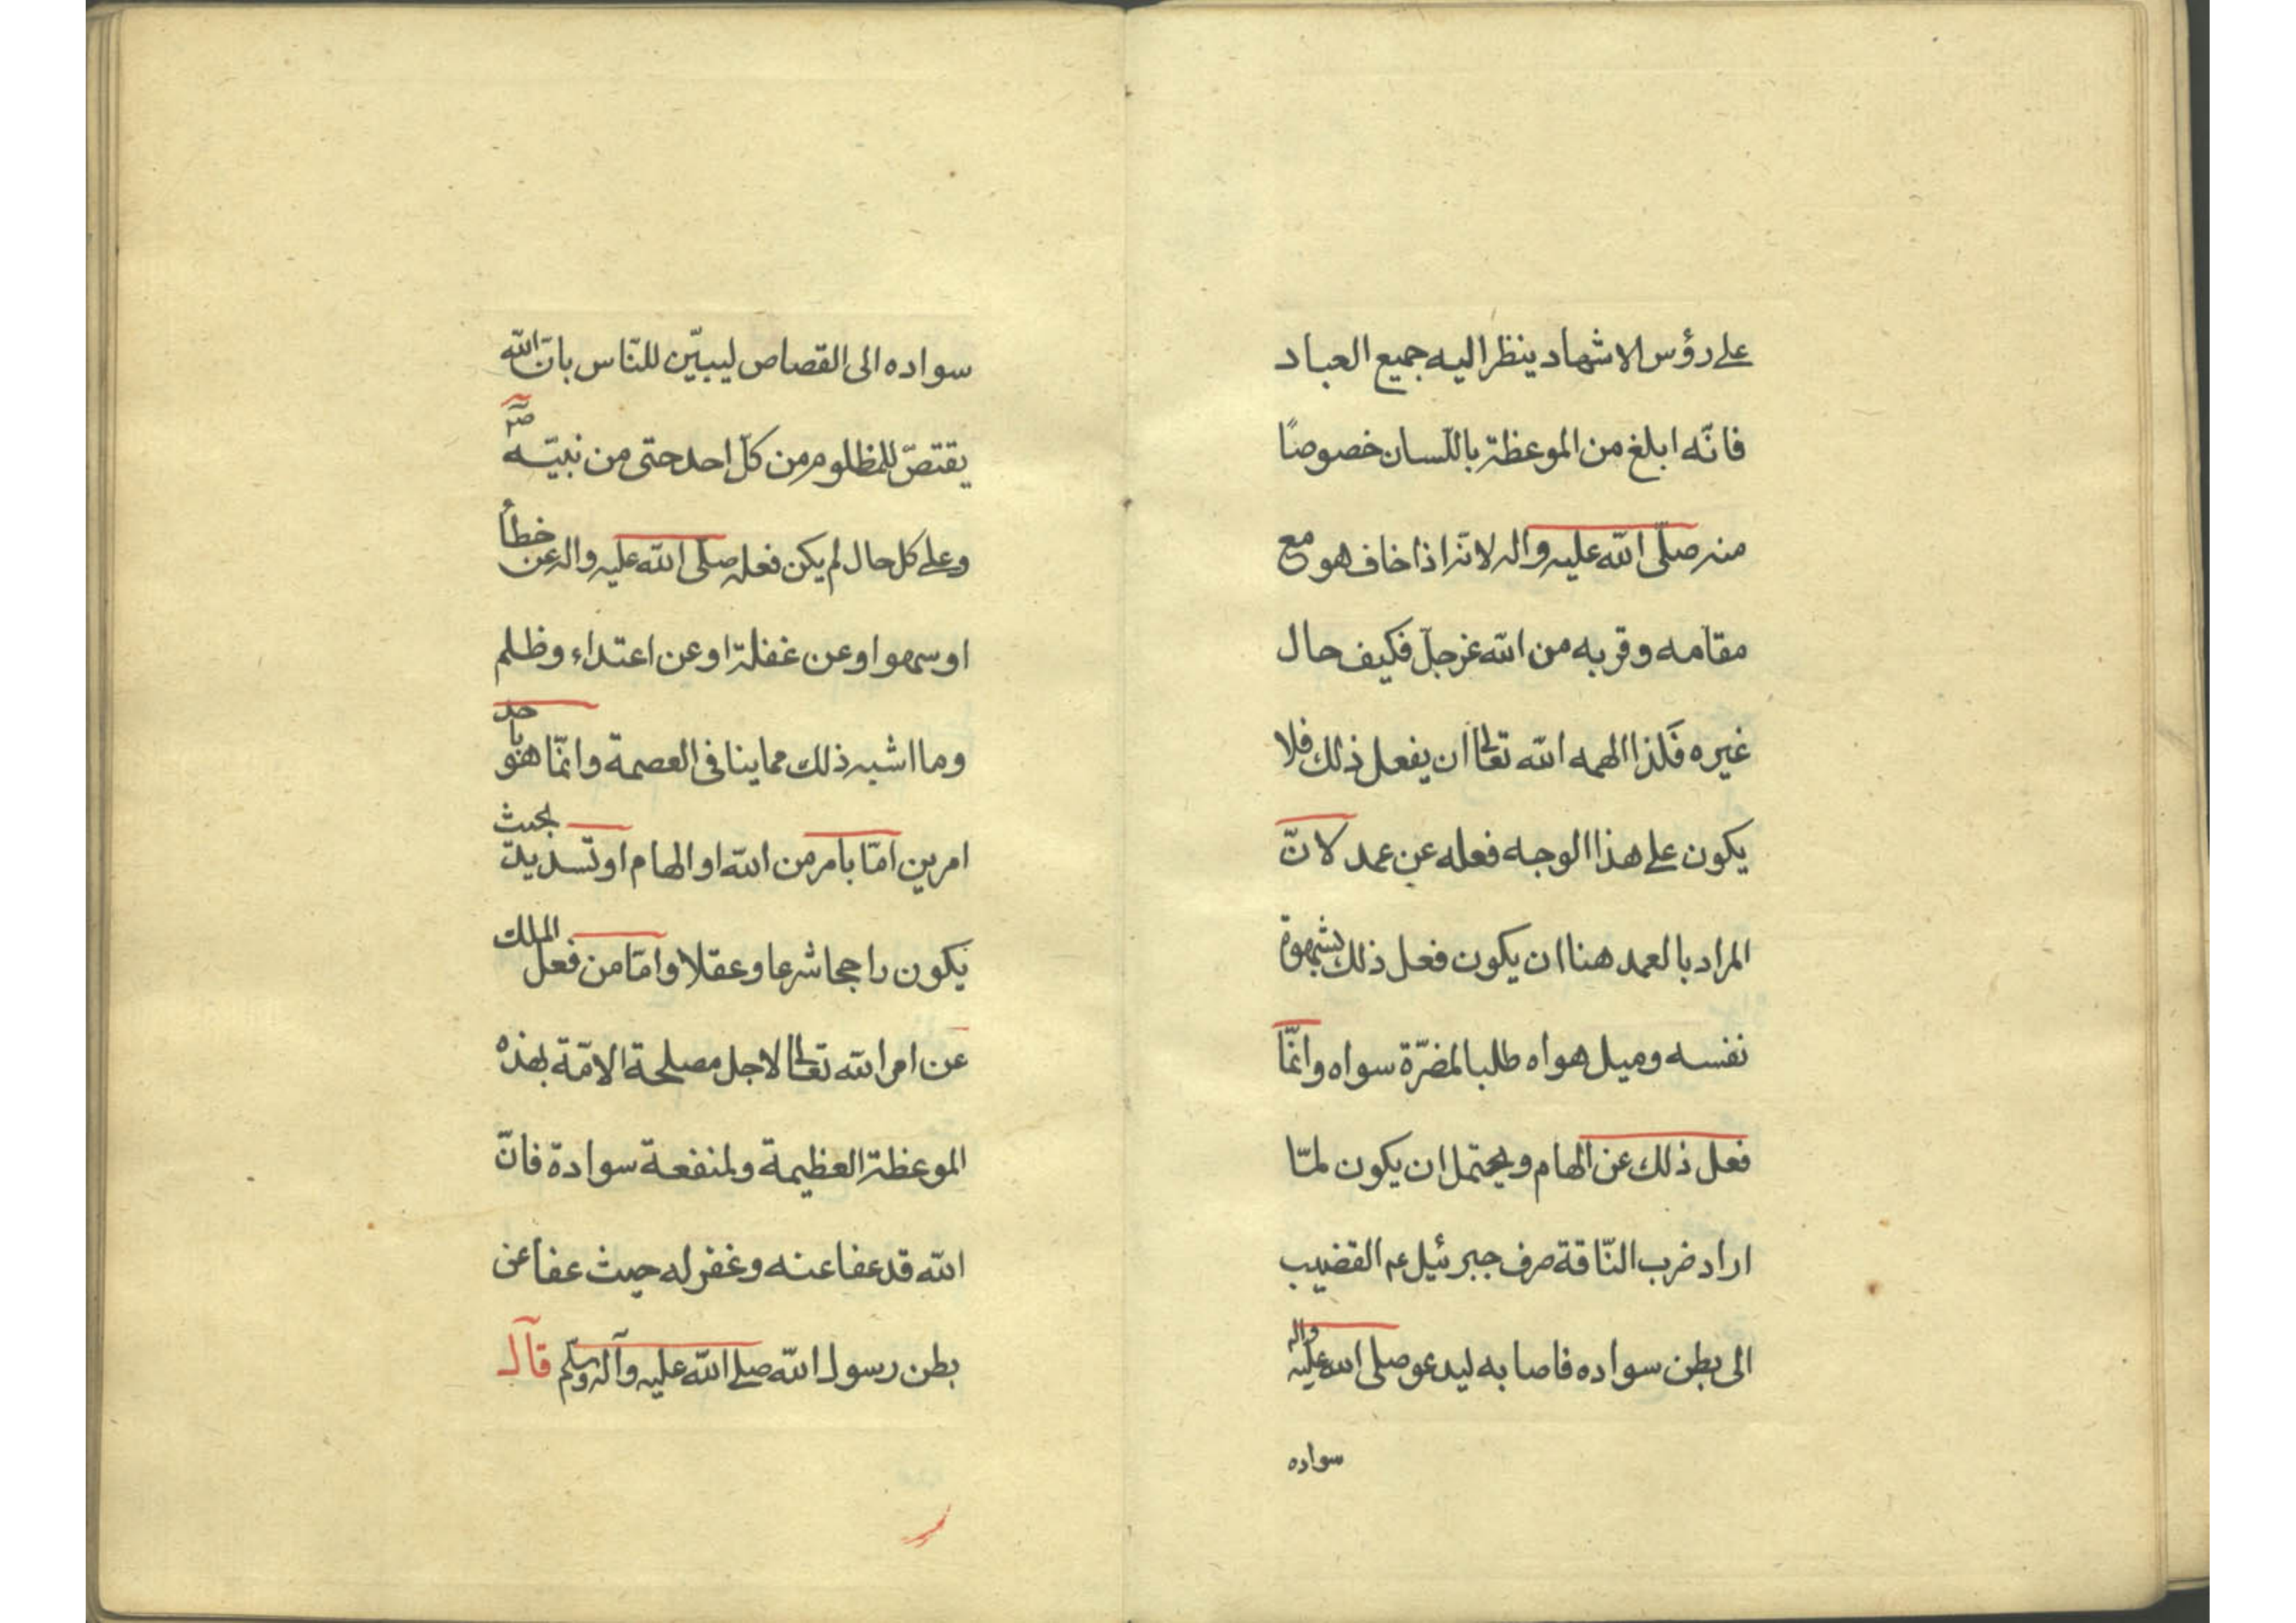 على رؤس الاشهاد ينظر اليه جميع العباد
فانّه ابلغ من الموعظة باللّسان خصوصًا
منه صلّى الله عليه واله لانه اذا خاف هو مع
مقامه وقربه من الله عز جلّ فكيف حال
غيره فلذا الهمه الله تعالى ان يفعل ذلك فلا
يكون على هذا الوجه فعله عن عمد لانّ
المراد بالعمد هنا ان يكون فعل ذلك بشهوة
نفسه وميل هواه طلبا لمضرّة سواه وانّما
فعل ذلك عن الهام ويحتمل ان يكون لمّا
اراد ضرب النّاقة صرف جبرئيل عم القضيب
الى بطن سواده فاصابه ليدعو صلى الله عليه واله
سواده
سواده الى القصاص ليبيّن للنّاس بانّ الله
يقتصّ للمظلوم من كلّ احد حتى من نبيّه ص
وعلى كل حال لم يكن فعله صلّى الله عليه واله عن خطأ
او سهو او عن غفلة او عن اعتداء وظلم
وما اشبه ذلك مما ينافى العصمة وانّما هو باحد
امرين امّا بامر من الله او الهام او تسديد بحيث
يكون راجحا شرعا وعقلا وامّا من فعل الملك
عن امر الله تعالى لاجل مصلحة الامّة بهذه
الموعظة العظيمة ولمنفعة سوادة فانّ
الله قد عفا عنه وغفر له حيث عفا عن
بطن رسول الله صلى الله عليه وآله وسلّم قال